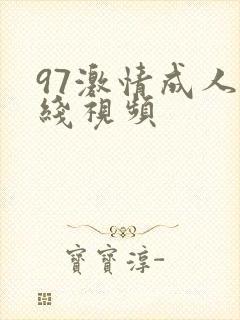 97激情成人
綫視頻
寶寶淳-